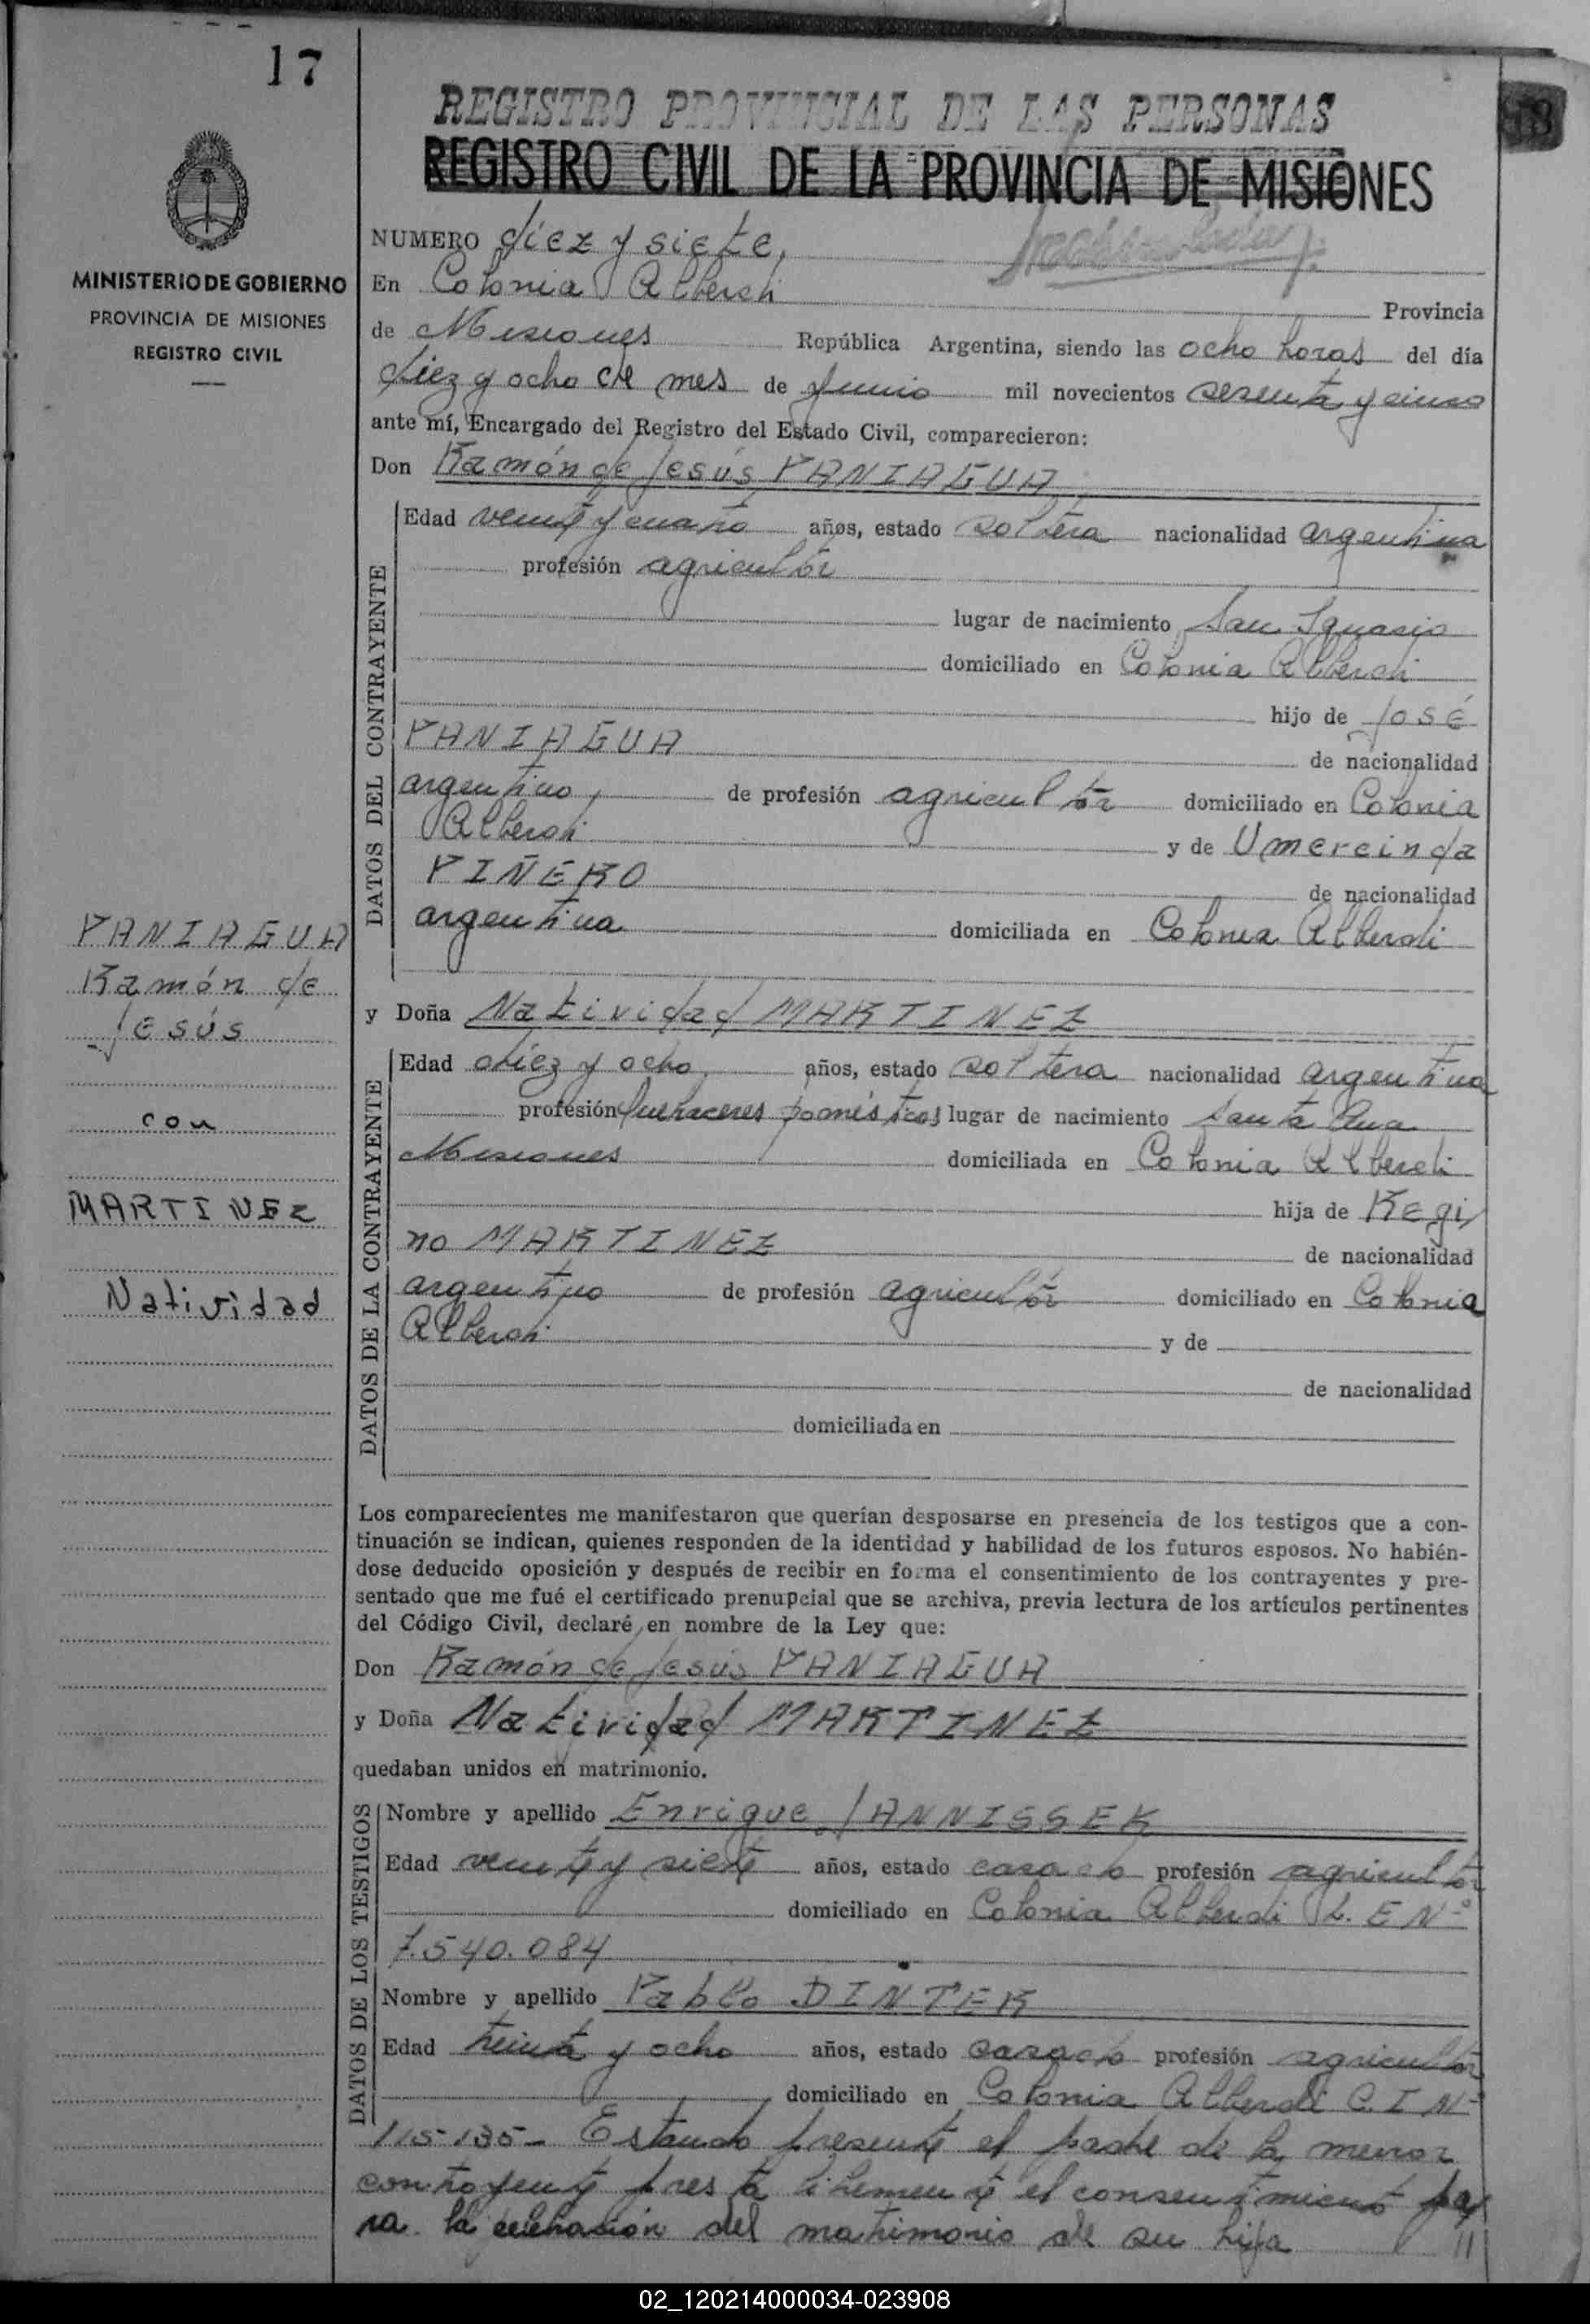 17
REGISTRO PROVINCIAL DE LAS PERSONAS
REGISTRO CIVIL DE LA PROVINCIA DE MISIONES
MINISTERIO DE GOBIERNO
PROVINCIA DE MISIONES
REGISTRO CIVIL
NUMERO diez y siete,
En Colonia Alberdi
Provincia
de Misiones República Argentina, siendo las ocho horas del día
diez y ocho de mes de junio mil novecientos sesenta y cinco
ante mí, Encargado del Registro del Estado Civil, comparecieron:
Don Ramón de Jesús PANIAGUA
DATOS DEL CONTRAYENTE
Edad veinte y cuatro años, estado soltera nacionalidad argentina
profesión agricultor
lugar de nacimiento San Ignacio
domiciliado en Colonia Alberdi
hijo de José
PANIAGUA
de nacionalidad
argentino, de profesión agricultor domiciliado en Colonia
Alberdi y de Umercinda
PIÑERO
de nacionalidad
argentina domiciliada en Colonia Alberdi
PANIAGUA
Ramón de
Jesús
con
MARTINEZ
Natividad
y Doña Natividad MARTINEZ
DATOS DE LA CONTRAYENTE
Edad diez y ocho, años, estado soltera nacionalidad argentina
profesión quehaceres domésticos lugar de nacimiento Santa Ana
Misiones domiciliada en Colonia Alberdi
hija de Regi
no MARTINEZ
de nacionalidad
argentino de profesión agricultor domiciliado en Colonia
Alberdi y de
de nacionalidad
domiciliada en
Los comparecientes me manifestaron que querían desposarse en presencia de los testigos que a con-
tinuación se indican, quienes responden de la identidad y habilidad de los futuros esposos. No habién-
dose deducido oposición y después de recibir en forma el consentimiento de los contrayentes y pre-
sentado que me fué el certificado prenupcial que se archiva, previa lectura de los artículos pertinentes
del Código Civil, declaré en nombre de la Ley que:
Don Ramón de Jesús PANIAGUA
y Doña Natividad MARTINEZ
quedaban unidos en matrimonio.
DATOS DE LOS TESTIGOS
Nombre y apellido Enrique JANNISSEK
Edad veinte y siete años, estado casado profesión agricultor
domiciliado en Colonia Alberdi L. E Nº
7.540.084
Nombre y apellido Pablo DINTER
Edad treinta y ocho años, estado casado profesión agricultor
domiciliado en Colonia Alberdi C. I Nº
115.135- Estando presente el padre de la menor
contrayente presta libremente el consentimiento pa
ra la celebración del matrimonio de su hija //
02_120214000034-023908